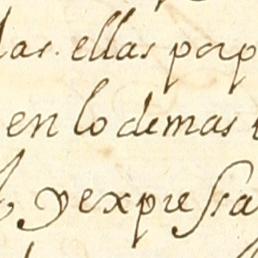 las. ellas porp
en lo demas
y expressa